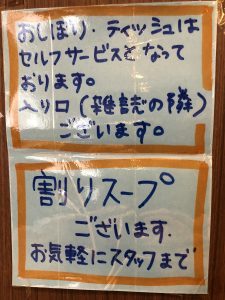 おしぼり・ティッシュは
セルフサービスとなって
おります。
入り口(雑誌の隣)
ございます。
割りスープ
ございます.
お気軽にスタッフまで